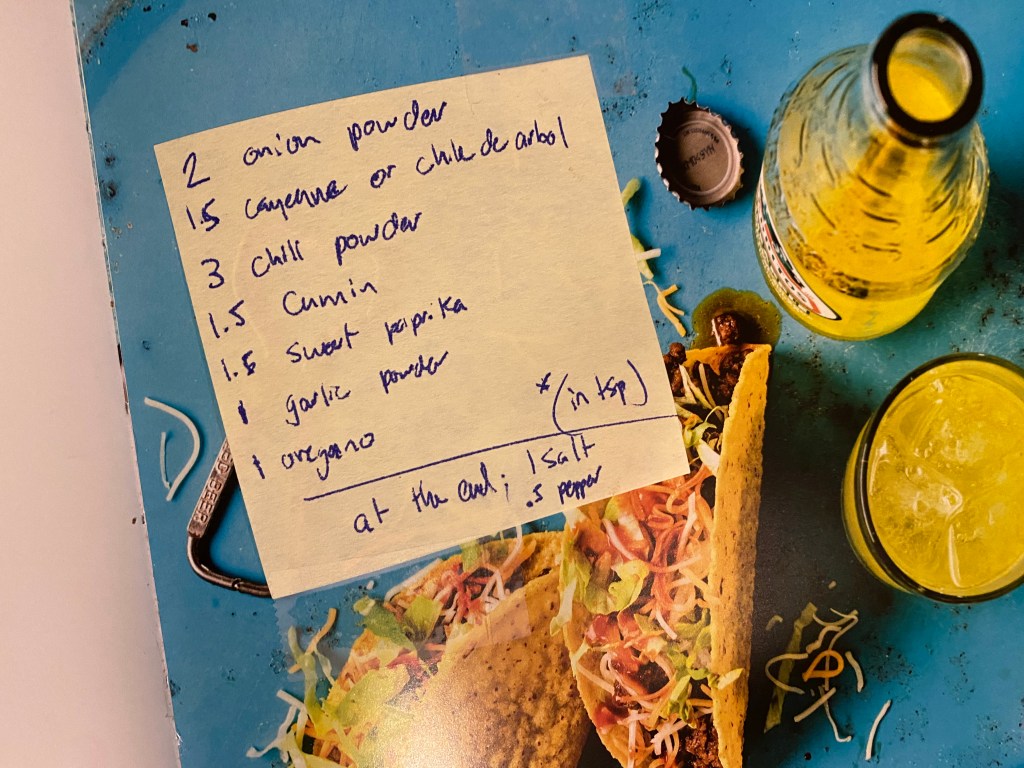 2 onion powder
1.5 cayenne or chile de arbol
3 chili powder
1.5 Cumin
1.5 sweet paprika
1 garlic powder
1 oregano
*(in tsp)
at the end; 1 salt
.5 pepper